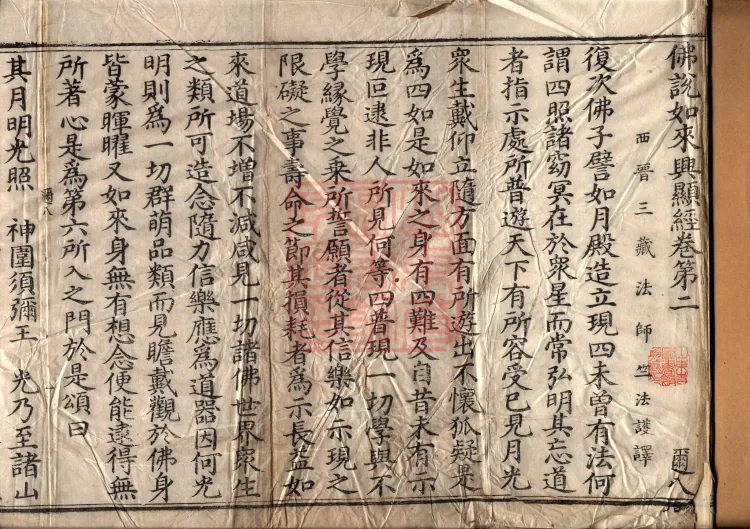 佛說如來興顯經卷第二
爾八
西晉三藏法師竺法護譯
復次佛子譬如月殿造立現四未曾有法何
謂四照諸窈冥在於衆星而常弘明其忘道
者指示處所普遊天下有所容受已見月光
衆生戴仰立隨方面有所遊出不懷狐疑是
爲四如是如來之身有四難及自昔未有示
現叵逮非人所見何等四普現一切學與不
學緣覺之乘所誓願者從其信樂如示現之
限礙之事壽命之節其損耗者爲示長益如
來道場不增不減咸見一切諸佛世界衆生
之類所可造念隨力信樂應爲道器因何光
明則爲一切群萌品類而見瞻戴觀於佛身
皆蒙暉曜又如來身無有想念便能逮得無
所著心是爲第六所入之門於是頌曰
爾八
其月明光照 神圍須彌王 光乃至諸山